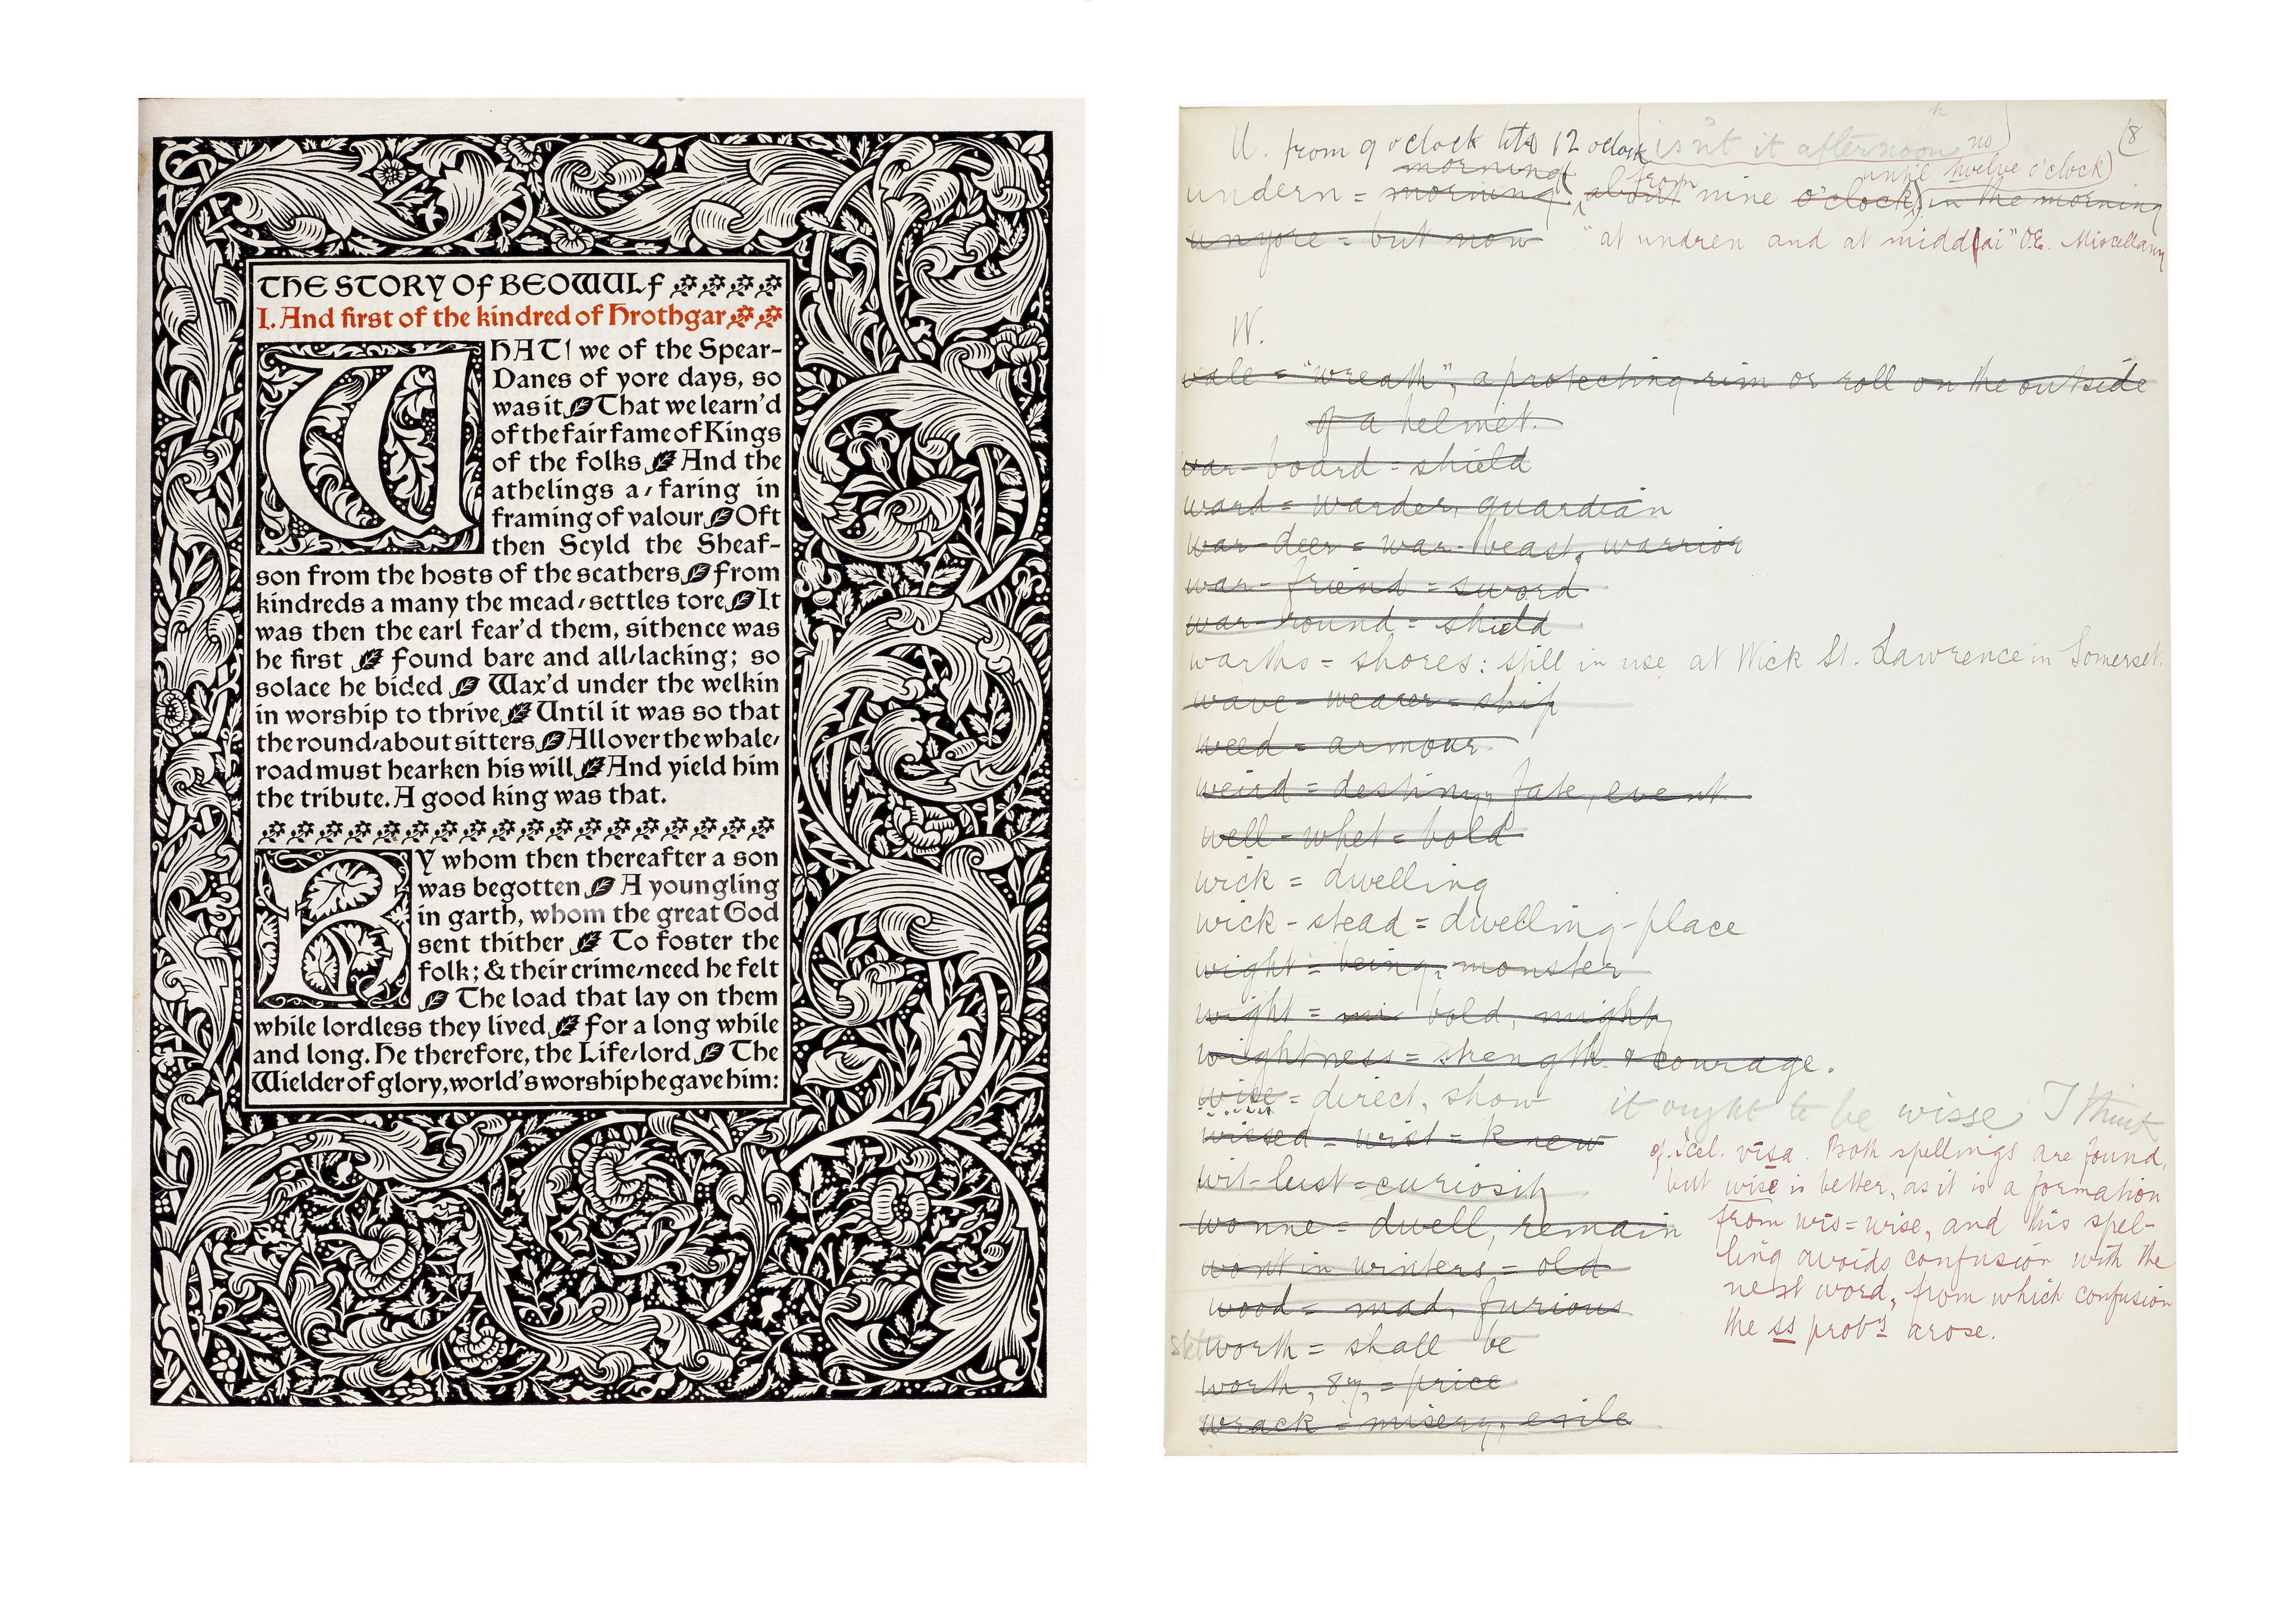 THE STORY OF BEOWULF
I. And first of the kindred of Hrothgar
WHAT! we of the Spear-
Danes of yore days, so
was it That we learn'd
of the fair fame of Kings
of the folks And the
athelings a-faring in
framing of valour Oft
then Scyld the Sheaf-
son from the hosts of the scathers From
kindreds a many the mead-settles tore It
was then the earl fear'd them, sithence was
he first Found bare and all-lacking; so
solace he bided Wax'd under the welkin
in worship to thrive Until it was so that
the round-about sitters All over the whale-
road must hearken his will And yield him
the tribute. A good king was that.
BY whom then thereafter a son
was begotten A youngling
in garth, whom the great God
sent thither To foster the
folk; & their crime-need he felt
The load that lay on them
while lordless they lived For a long while
and long. He therefore, the Life-lord The
Wielder of glory, world's worship he gave him:
(8
U. from 9 o'clock 12 o'clock isn't it afternoon? no
morning ( from until twelve o'clock)
undern = morning about nine o'clock) in the morning
unyore = but now "at undren and at middai" OE. Miscellany
W.
wale = "wreath", a protecting rim or roll on the outside
of a helmet.
war-board = shield
ward = warder, guardian
war-deer = war-beast, warrior
war-friend = sword
war-round = shield
warths = shores: still in use at Wick St. Lawrence in Somerset.
wave-wearer = ship
weed = armour
weird = destiny, fate, event
well-whet = bold
wick = dwelling
wick-stead = dwelling-place
wight = being, monster
wight = mi bold, mighty
wightness = strength & courage.
wise = direct, show it ought to be wisse I think
wissed = wist = knew
cf. Icel. vísa. Both spellings are found,
but wise is better, as it is a formation
from wís = wise, and this spel-
ling avoids confusion with the
next word, from which confusion
the ss proby arose.
wit-lust = curiosity
wonne = dwell, remain
wont in winters = old
wood = mad, furious
stet worth = shall be
worth, = price
wrack = misery, exile